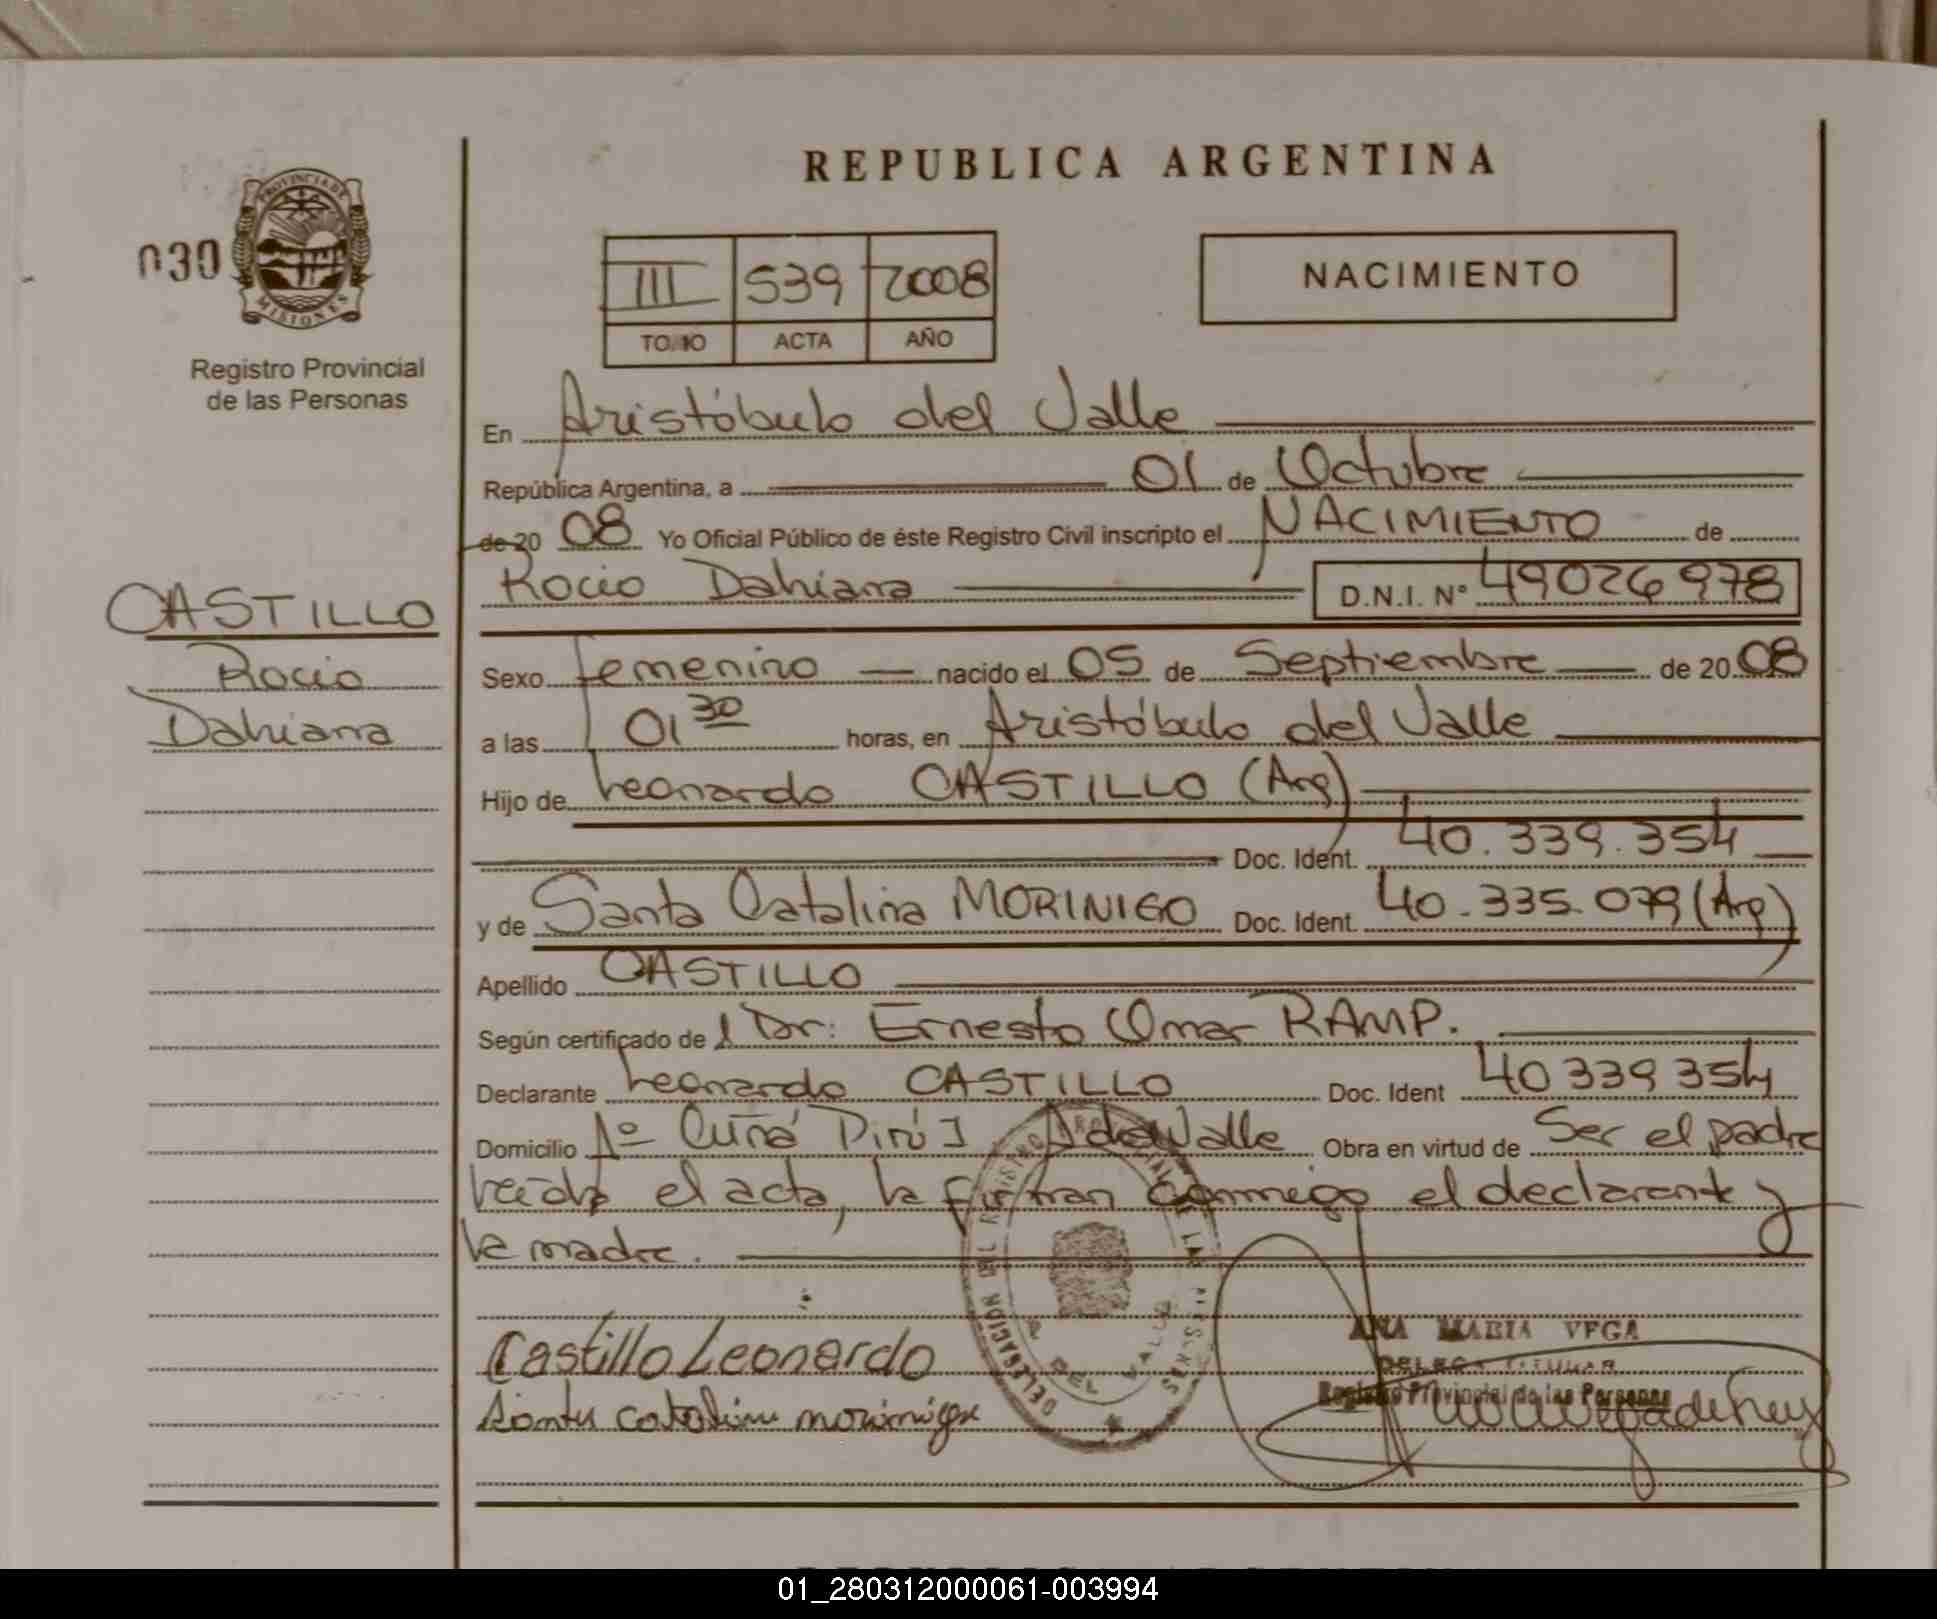 REPUBLICA ARGENTINA
030
PROVINCIA DE
MISIONES
Registro Provincial
de las Personas
III 539 2008
TOMO ACTA AÑO
NACIMIENTO
En Aristóbulo del Valle
República Argentina, a 01 de Octubre
de 20 08 Yo Oficial Público de éste Registro Civil inscripto el NACIMIENTO de
Rocio Dahiana D.N.I. N° 49026978
CASTILLO
Rocio
Dahiana
Sexo femenino nacido el 05 de Septiembre de 20 08
a las 01 30 horas, en Aristóbulo del Valle
Hijo de Leonardo CASTILLO (Arg)
Doc. Ident. 40.339.354
y de Santa Catalina MORINIGO Doc. Ident. 40.335.079 (Arg)
Apellido CASTILLO
Según certificado de l Dr: Ernesto Omar RAMP.
Declarante Leonardo CASTILLO Doc. Ident 40339354
Domicilio Aº Cuñá Pirú I A del Valle Obra en virtud de Ser el padre
Leída el acta, la firman conmigo el declarante y
la madre.
Castillo Leonardo
Santa catalina morinigo
DELEGACION DEL REGISTRO PROVINCIAL DE LAS PERSONAS
A DEL VALLE
ANA MARIA VEGA
DELEGA TITULAR
Registro Provincial de las Personas
01_280312000061-003994